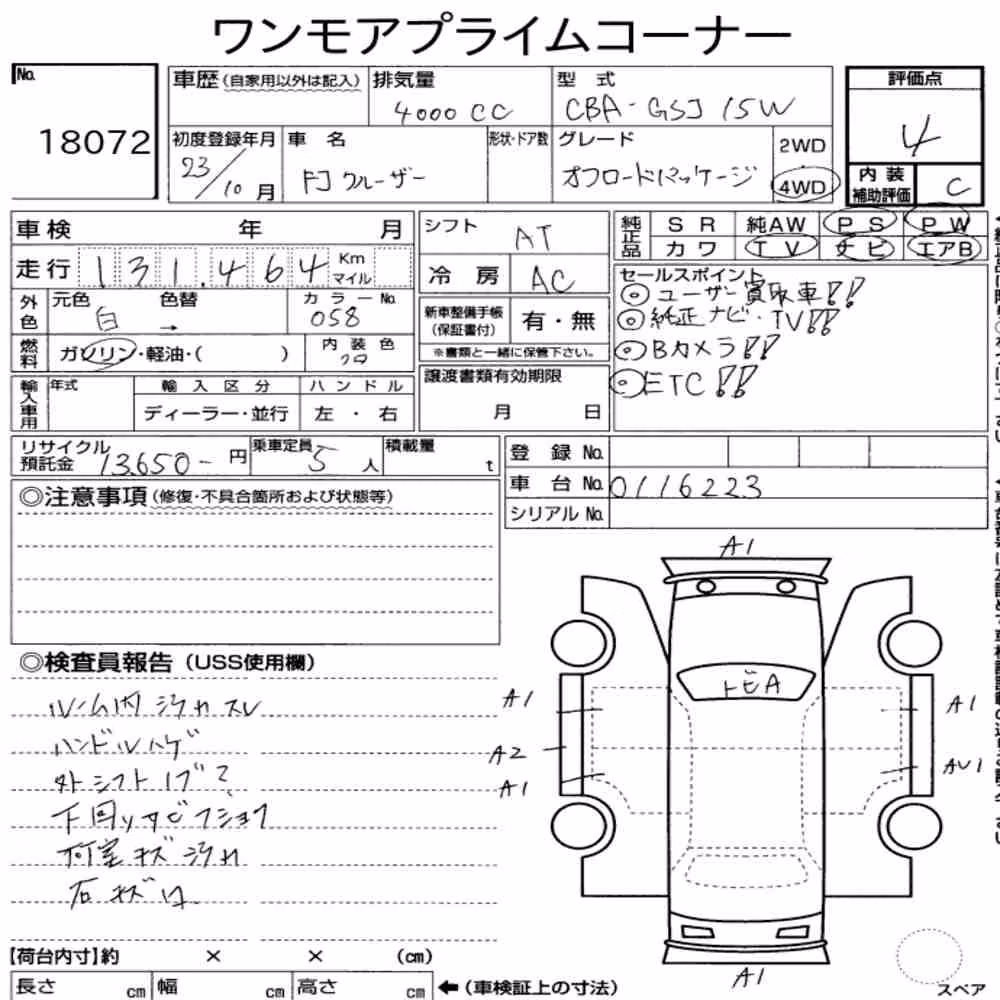 ワンモアプライムコーナー
No.
18072
車歴(自家用以外は記入)
排気量
4000 CC
型 式
CBA-GSJ 15W
評価点
4
初度登録年月
23/10 月
車 名
FJ クルーザー
形状・ドア数
グレード
オフロードパッケージ
2WD
4WD
内 装
補助評価
C
車検 年 月
シフト
AT
純正品
S R 純AW P S P W
カ ワ T V ナビ エアB
走行 131.464 Km マイル
冷 房
AC
セールスポイント
◎ユーザー買取車!!
◎純正ナビ・TV!!
◎Bカメラ!!
◎ETC!!
外色
元色
白
色替
→
カラーNo.
058
新車整備手帳
(保証書付)
有・無
※書類と一緒に保管下さい。
燃料
ガソリン・軽油・( )
内 装 色
輸入車用
年式
輸 入 区 分
ディーラー・並行
ハ ン ド ル
左 ・ 右
譲渡書類有効期限
月 日
リサイクル
預託金
13,650- 円
乗車定員
5 人
積載量
t
登 録 No.
車 台 No.
0116223
シリアル No.
◎注意事項(修復・不具合箇所および状態等)
◎検査員報告(USS使用欄)
ルーム内 汚れ スレ
ハンドルハゲ
外シフトノブ?
下回りサビ フショク
荷室キズ 汚れ
石キズ
A1
トビA
A1
A2
A1
A1
AU1
A1
スペア
【荷台内寸】約 × × (cm)
長さ cm 幅 cm 高さ cm
←(車検証上の寸法)